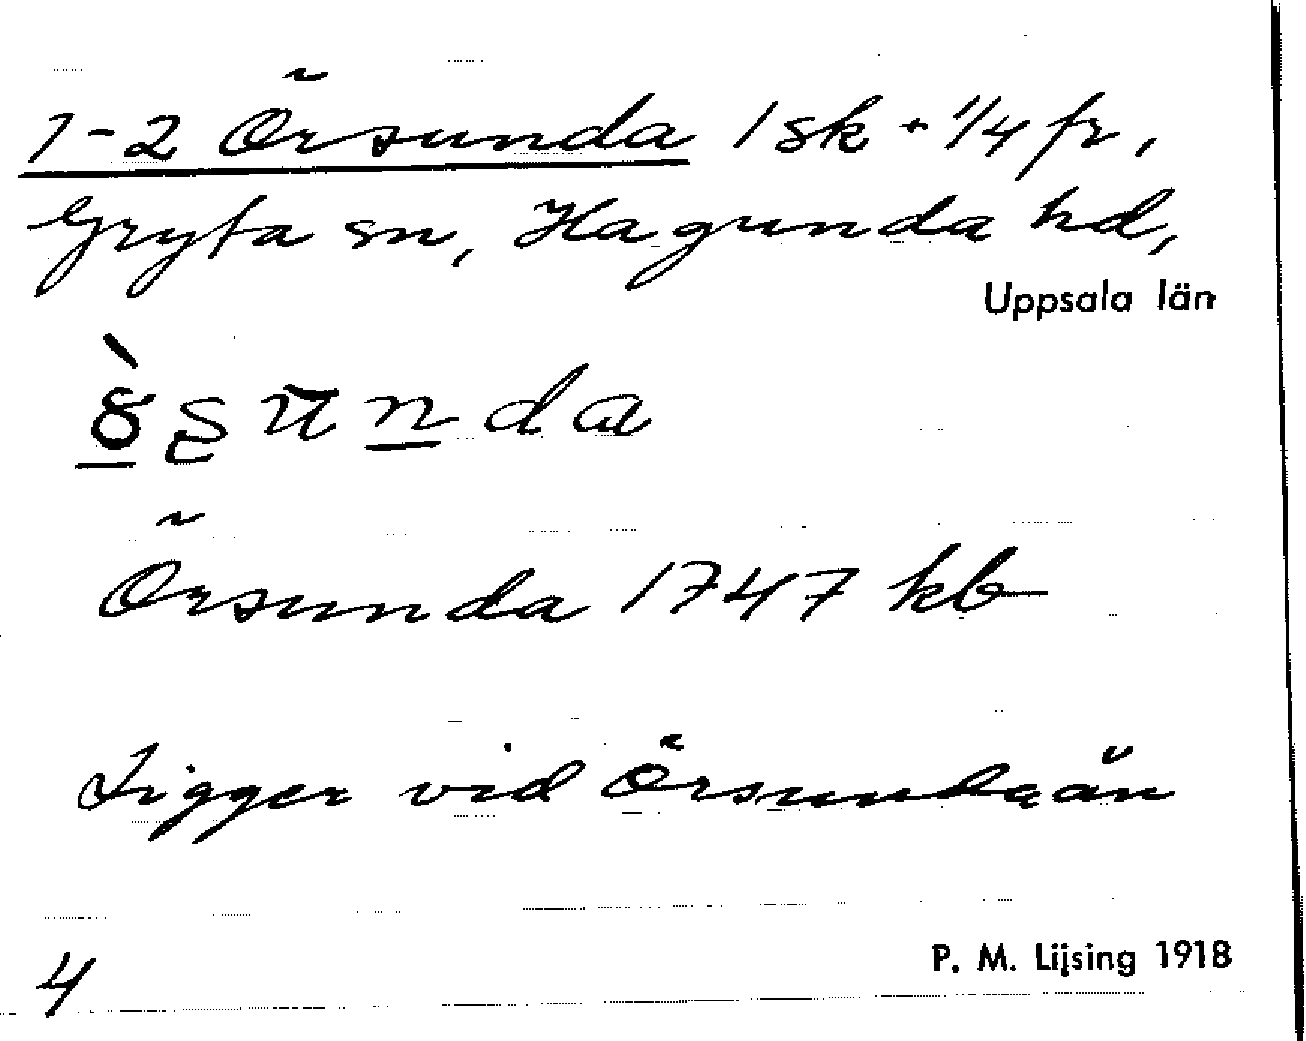 1-2 Örsunda 1 sk + 1/4 fr,
Gryta sn, Hagunda hd,
Uppsala län
Örsunda 1747 kb
Ligger vid Örsundaån
P. M. Lijsing 1918
4